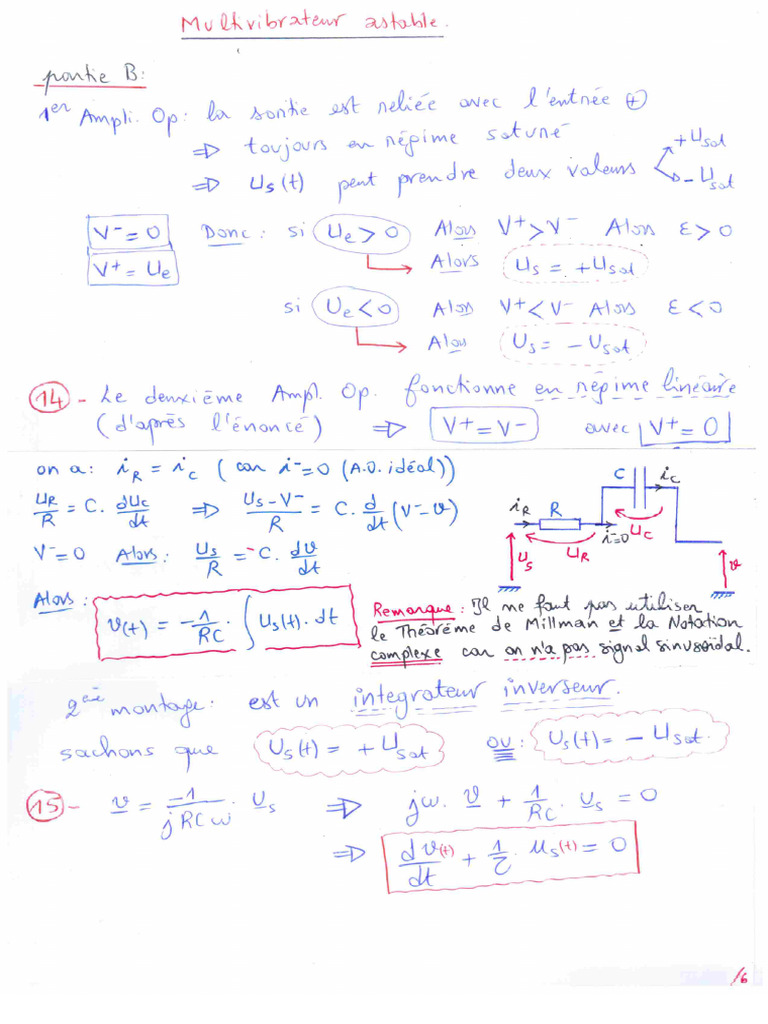 Multivibrateur astable.
partie B:
1er Ampli. Op: la sortie est reliée avec l'entrée ⊕
⇒ toujours en régime saturé
⇒ Us(t) peut prendre deux valeurs +Usat
-Usat
V⁻=0 Donc: si Ue>0 Alors V⁺>V⁻ Alors ε>0
V⁺=Ue Alors Us=+Usat
si Ue<0 Alors V⁺<V⁻ Alors ε<0
Alors Us=-Usat
14- Le deuxième Ampl. Op. fonctionne en régime linéaire
(d'après l'énoncé) ⇒ V⁺=V⁻ avec V⁺=0
on a: iR=iC (car i⁻=0 (A.O. idéal))
UR/R = C. dUc/dt ⇒ (Us-V⁻)/R = C. d/dt (V⁻-v)
V⁻=0 Alors: Us/R = -C. dv/dt
Alors: v(t) = -1/RC . ∫ Us(t). dt
C iC
iR R i⁻=0 UC
Us UR v
Remarque: Il ne faut pas utiliser
le Théorème de Millman et la Notation
complexe car on n'a pas signal sinusoïdal.
2què montage: est un integrateur inverseur.
sachons que Us(t) = +Usat ou: Us(t) = -Usat.
15- v = -1/jRCω . Us ⇒ jω. v + 1/RC . Us = 0
⇒ dv(t)/dt + 1/τ . Us(t) = 0
/6